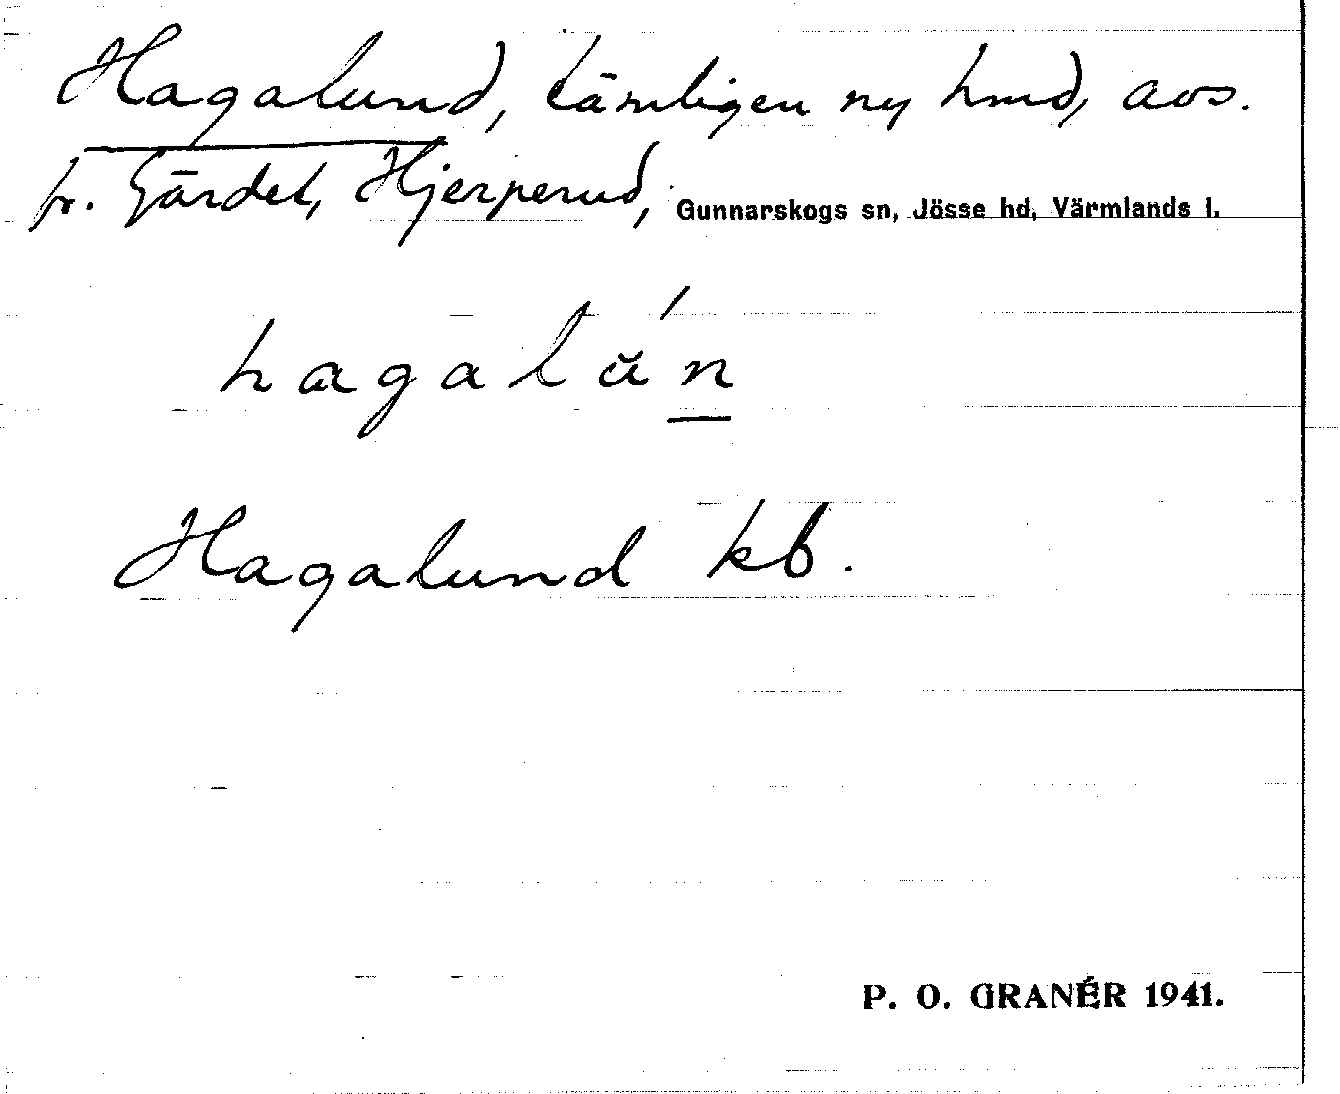 Hagalund, tämligen ny hmd, avs.
fr. Gärdet, Hjerperud, Gunnarskogs sn, Jösse hd, Värmlands l.
hagalŭ´n
Hagalund kb.
P. O. GRANÉR 1941.